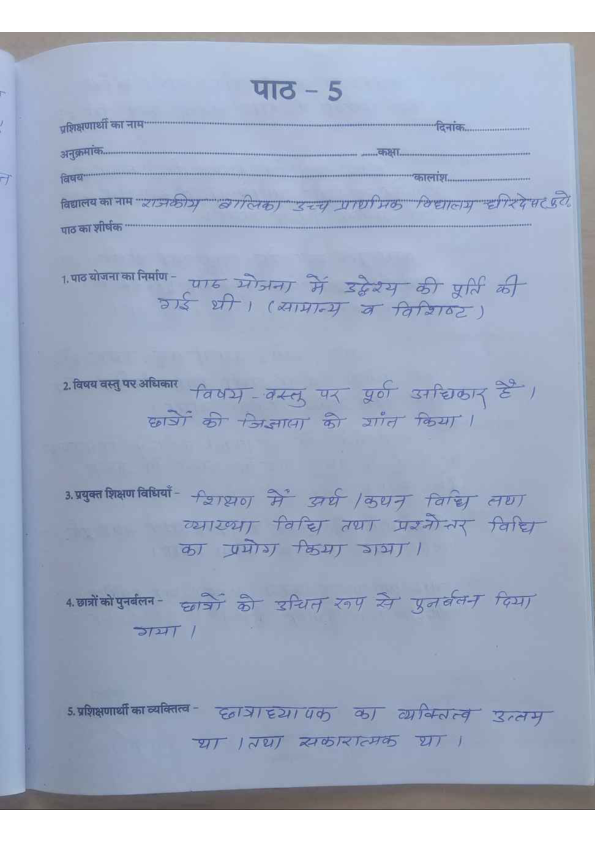 पाठ – 5
प्रशिक्षणार्थी का नाम दिनांक
अनुक्रमांक कक्षा
विषय कालांश
विद्यालय का नाम राजकीय बालिका उच्च प्राथमिक विद्यालय
पाठ का शीर्षक
1. पाठ योजना का निर्माण – पाठ योजना में उद्देश्य की पूर्ति की
गई थी । (सामान्य व विशिष्ट)
2. विषय वस्तु पर अधिकार विषय-वस्तु पर पूर्ण अधिकार है ।
छात्रों की जिज्ञासा को शांत किया ।
3. प्रयुक्त शिक्षण विधियाँ – शिक्षण में अर्थ / कथन विधि तथा
व्याख्या विधि तथा प्रश्नोत्तर विधि
का प्रयोग किया गया ।
4. छात्रों को पुनर्बलन – छात्रों को उचित रूप से पुनर्बलन दिया
गया ।
5. प्रशिक्षणार्थी का व्यक्तित्व – छात्राध्यापक का व्यक्तित्व उत्तम
था । तथा सकारात्मक था ।